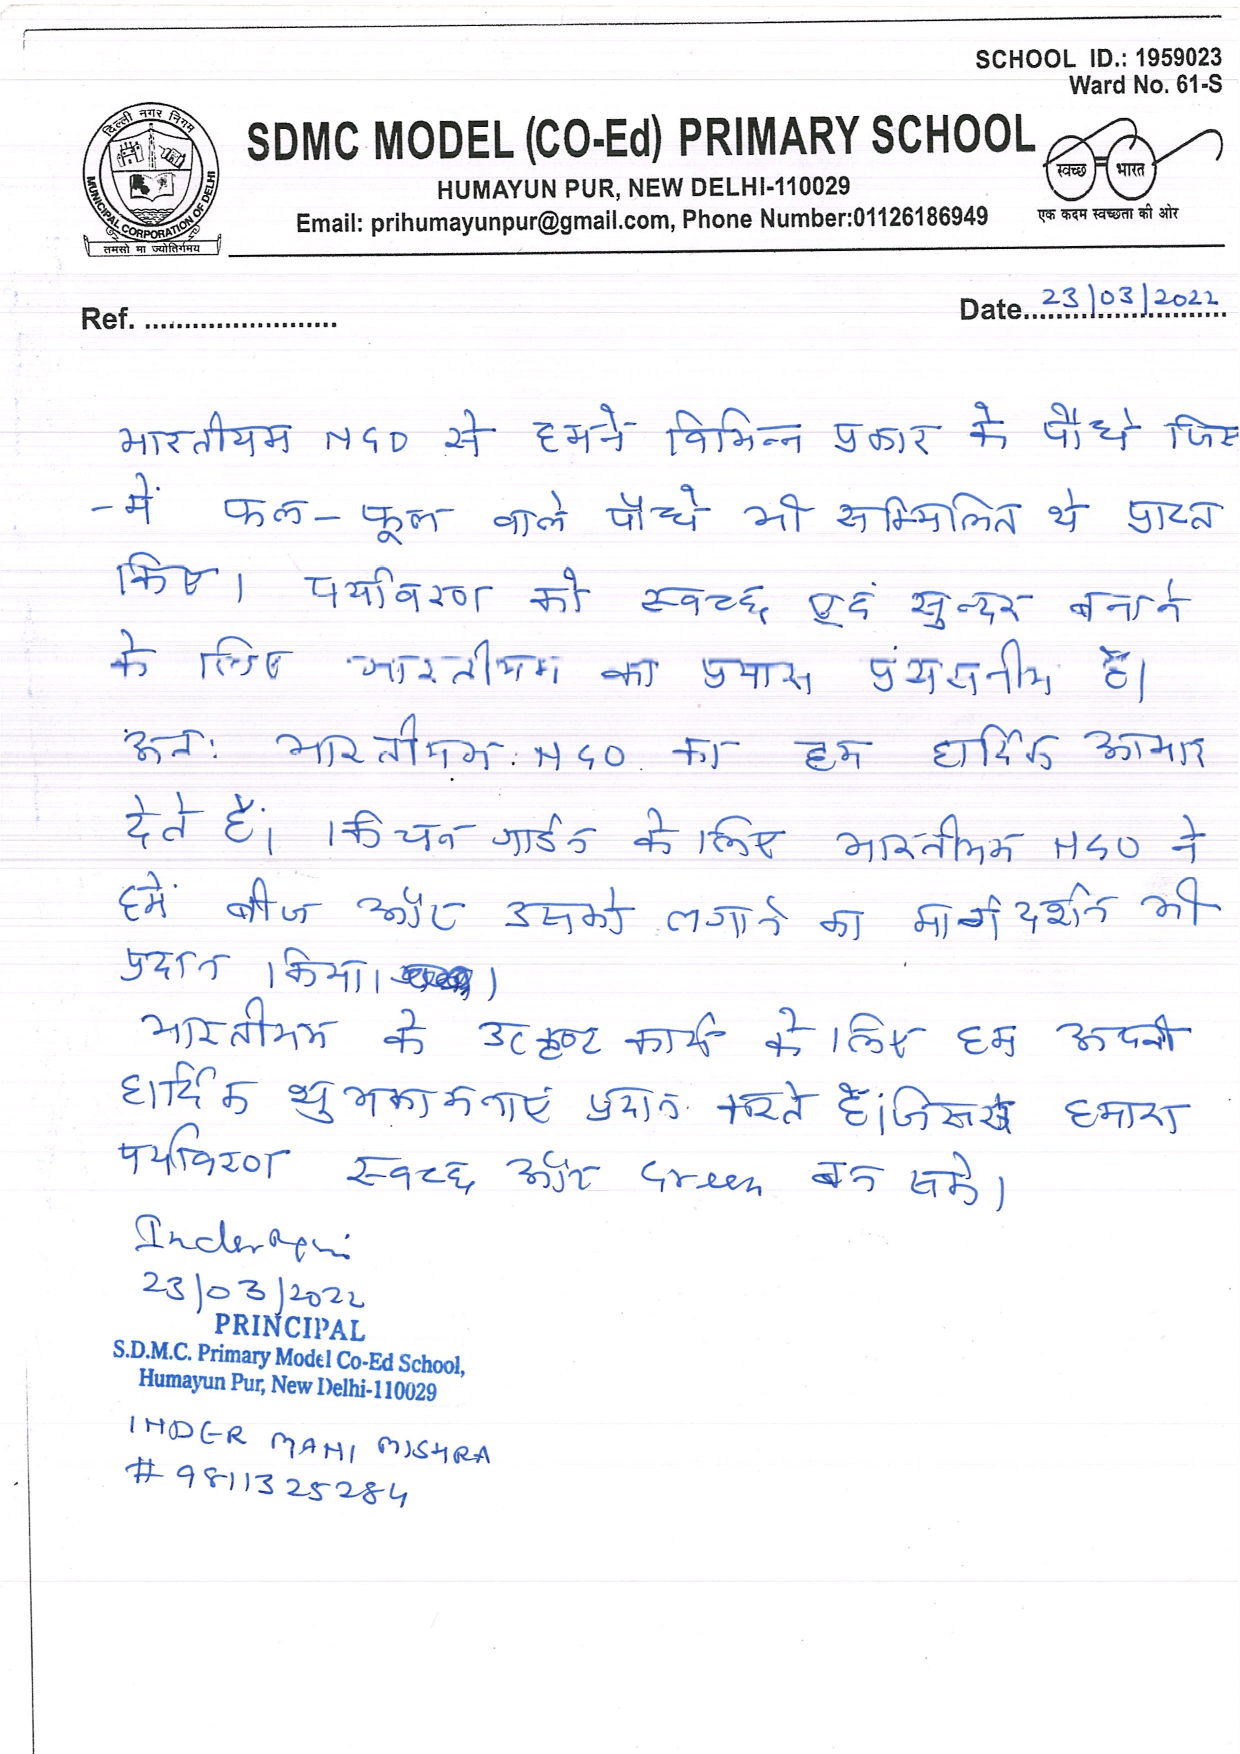 SCHOOL ID.: 1959023
Ward No. 61-S
दिल्ली नगर निगम
MUNICIPAL CORPORATION OF DELHI
तमसो मा ज्योतिर्गमय
SDMC MODEL (CO-Ed) PRIMARY SCHOOL
HUMAYUN PUR, NEW DELHI-110029
Email: prihumayunpur@gmail.com, Phone Number:01126186949
स्वच्छ भारत
एक कदम स्वच्छता की ओर
Ref. ........................
Date..23/03/2022
भारतीयम NGO से हमने विभिन्न प्रकार के पौधे जिस
-में फल-फूल वाले पौधे भी सम्मिलित थे प्राप्त
किए। पर्यावरण को स्वच्छ एवं सुन्दर बनाने
के लिए भारतीयम का प्रयास प्रंशसनीय है।
अतः भारतीयम NGO का हम हार्दिक आभार
देते हैं। किचन गार्डन के लिए भारतीयम NGO ने
हमें बीज और उसको लगाने का मार्ग दर्शन भी
प्रदान किया।
भारतीयम के उत्कृष्ट कार्य के लिए हम अपनी
हार्दिक शुभकामनाएं प्रदान करते हैं। जिससे हमारा
पर्यावरण स्वच्छ और Green बन सके।
23/03/2022
PRINCIPAL
S.D.M.C. Primary Model Co-Ed School,
Humayun Pur, New Delhi-110029
INDER MANI MISHRA
# 9811325284